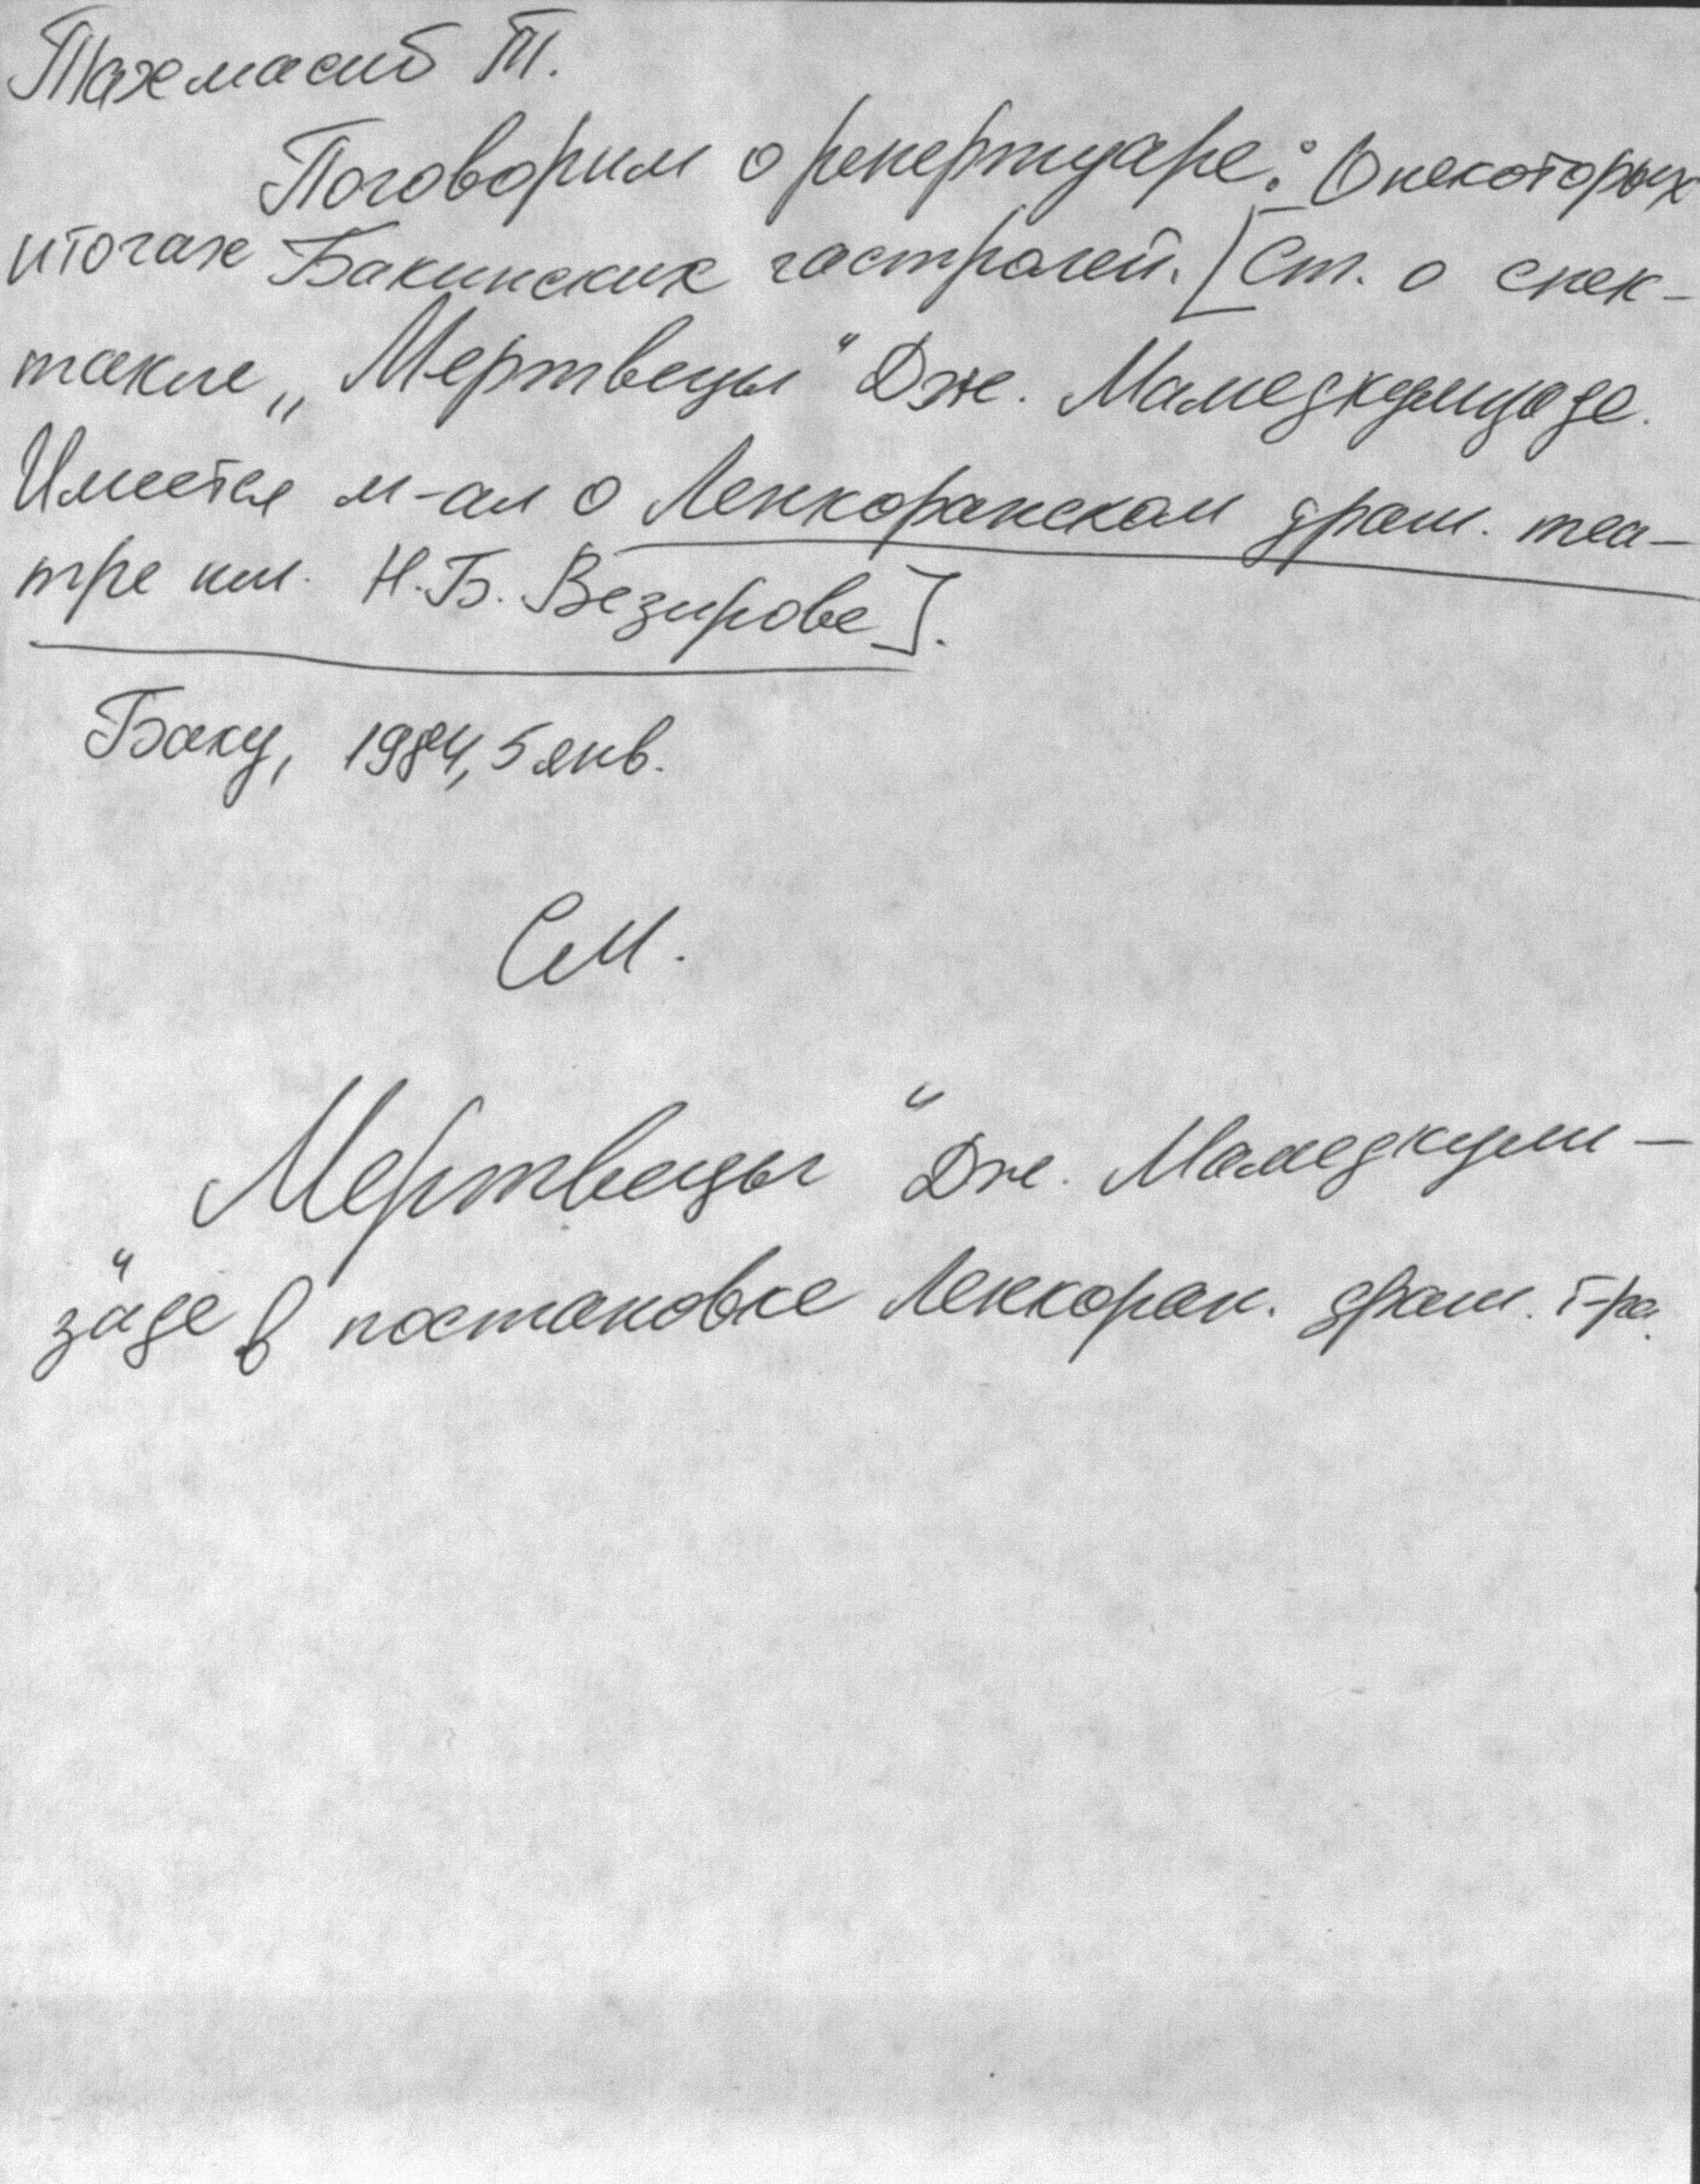 Тахмасиб Т.
Поговорим о репертуаре: О некоторых
итогах Бакинских гастролей. [Ст. о спек-
такле „Мертвецы" Дж. Мамедкулизаде.
Имеется м-ал о Ленкоранском драм. теа-
тре им. Н.Б. Везирове].
Баку, 1984, 5 янв.
См.
„Мертвецы" Дж. Мамедкули-
заде в постановке Ленкоран. драм. т-ра.